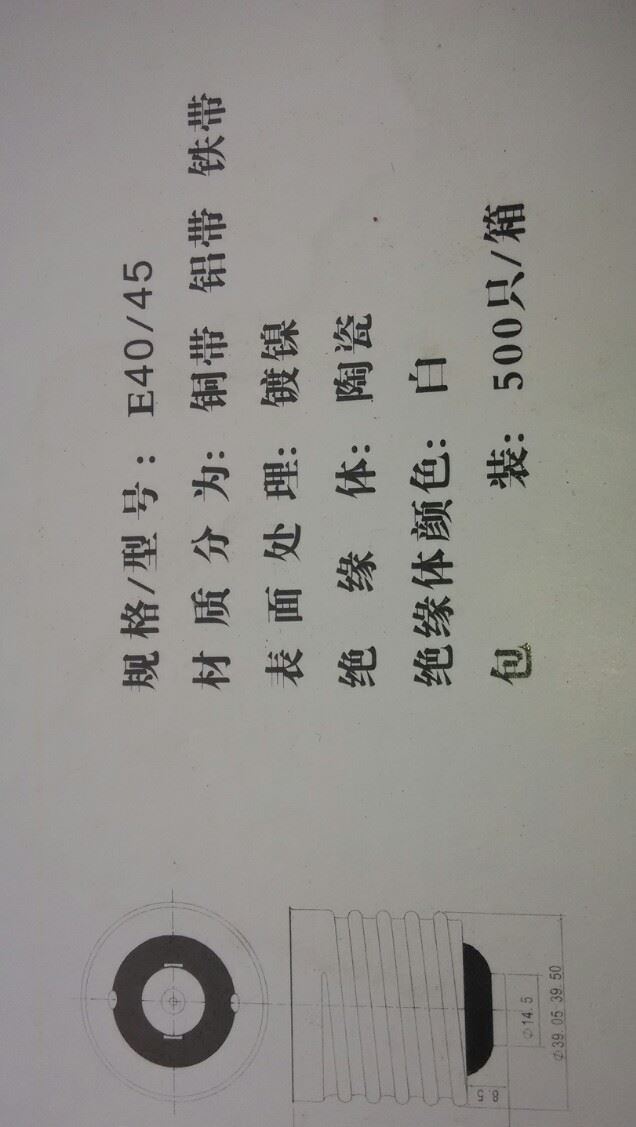 规格/型号: E40/45
材质分为: 铜带 铝带 铁带
表面处理: 镀镍
绝缘体: 陶瓷
绝缘体颜色: 白
包装: 500只/箱
8.5
Φ14.5
Φ39.05 39.50